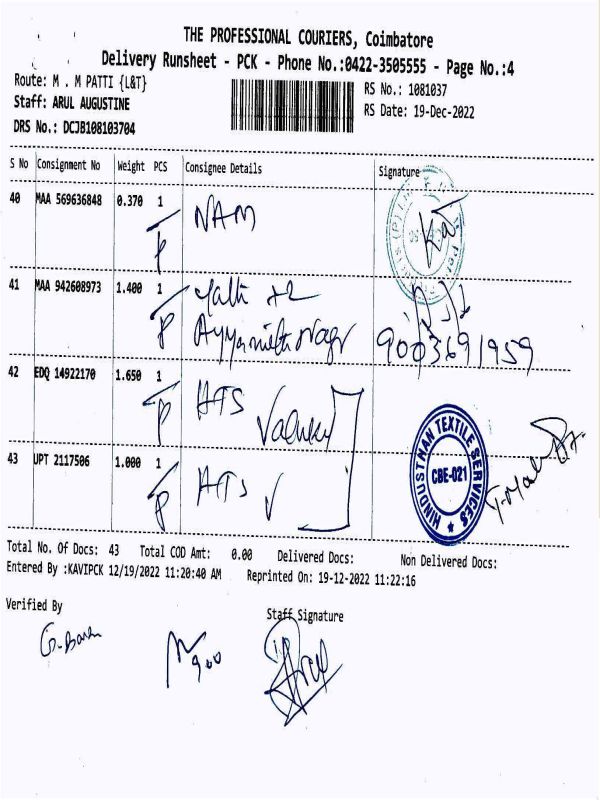 THE PROFESSIONAL COURIERS, Coimbatore
Delivery Runsheet - PCK - Phone No.:0422-3505555 - Page No.:4
Route: M . M PATTI {L&T}
RS No.: 1081037
Staff: ARUL AUGUSTINE
RS Date: 19-Dec-2022
DRS No.: DCJB108103704
S No Consignment No Weight PCS Consignee Details Signature
40 MAA 569636848 0.370 1 NAM
P
41 MAA 942608973 1.400 1
P 9003691959
42 EDQ 14922170 1.650 1 HTS
P
HINDUSTHAN TEXTILE SERVICES
CBE-021
43 UPT 2117506 1.000 1 HTS
P
Total No. Of Docs: 43 Total COD Amt: 0.00 Delivered Docs: Non Delivered Docs:
Entered By :KAVIPCK 12/19/2022 11:20:40 AM Reprinted On: 19-12-2022 11:22:16
Verified By
Staff Signature
900